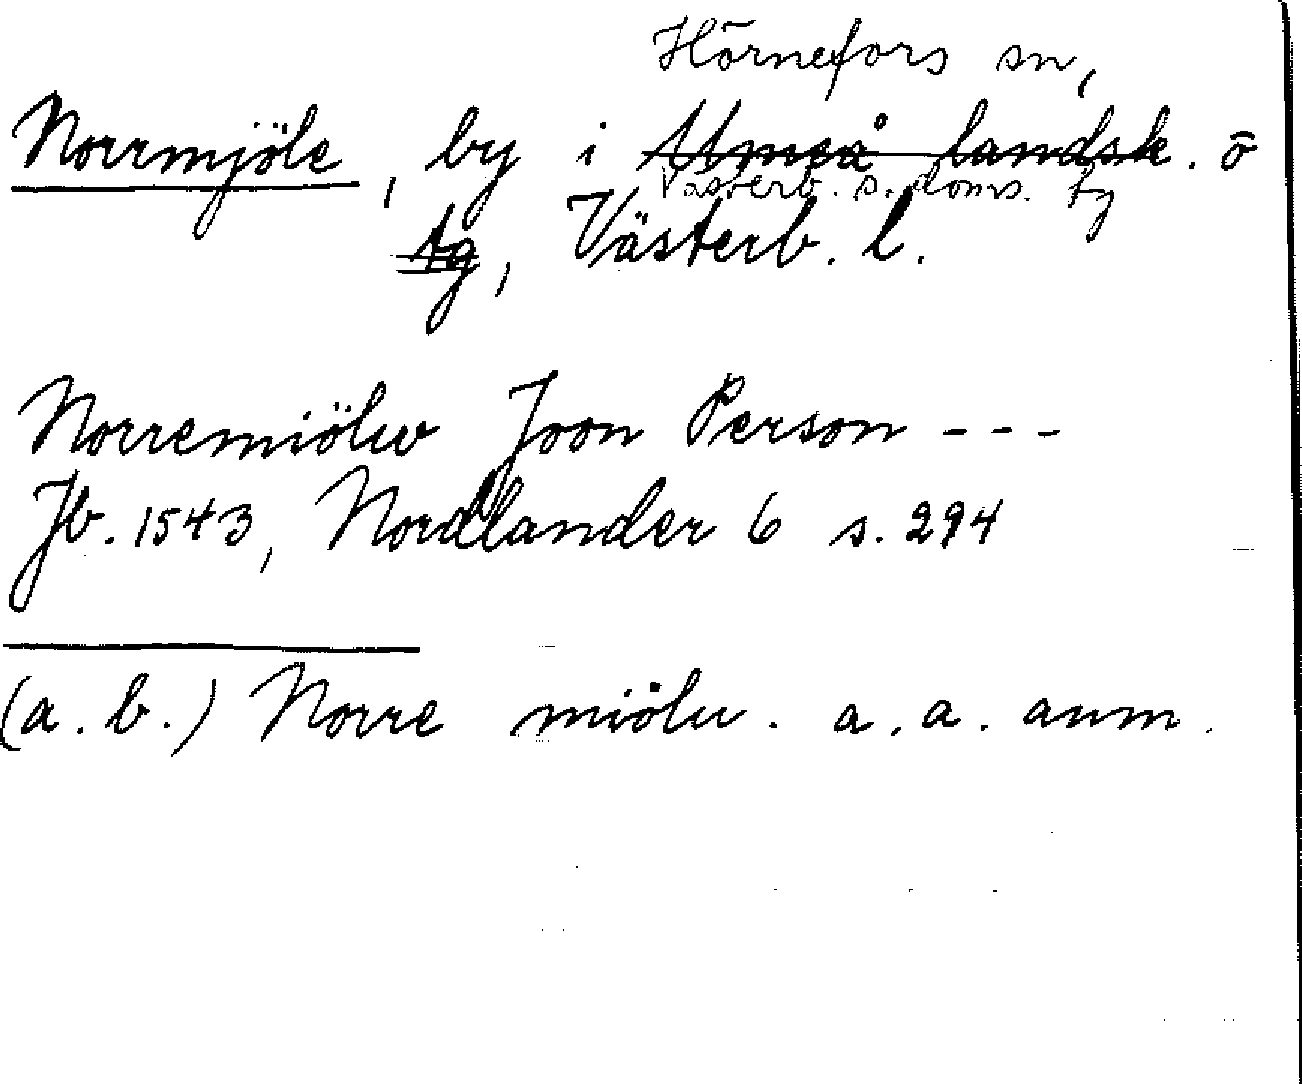 Hörnefors sn,
Norrmjöle, by i Umeå landsk. ō
Västerb. s. doms. tg
tg, Västerb. l.
Norremiölw Joon Person ---
Jb. 1543, Nordlander 6 s. 294
(a. b.) Norre miölu. a. a. anm.